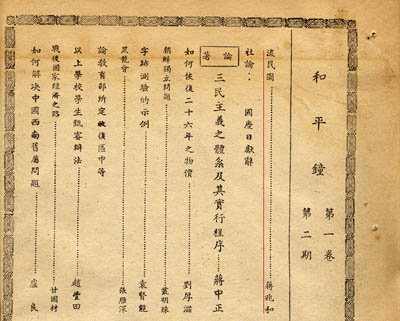 和平鐘
第一卷
第二期
流民圖……蔣兆和
社論：國慶日獻辭
論著
三民主義之體系及其實行程序……蔣中正
如何恢復二十六年之物價……劉厚滋
朝鮮獨立問題……葉明珠
字跡測驗的示例……袁賢能
黑龍會……張雁深
論教育部所定收復區中等
以上學校學生甄審辦法……趙豐田
戰後國家經濟之路……甘國村
如何解決中國西南舊屬問題……盧良